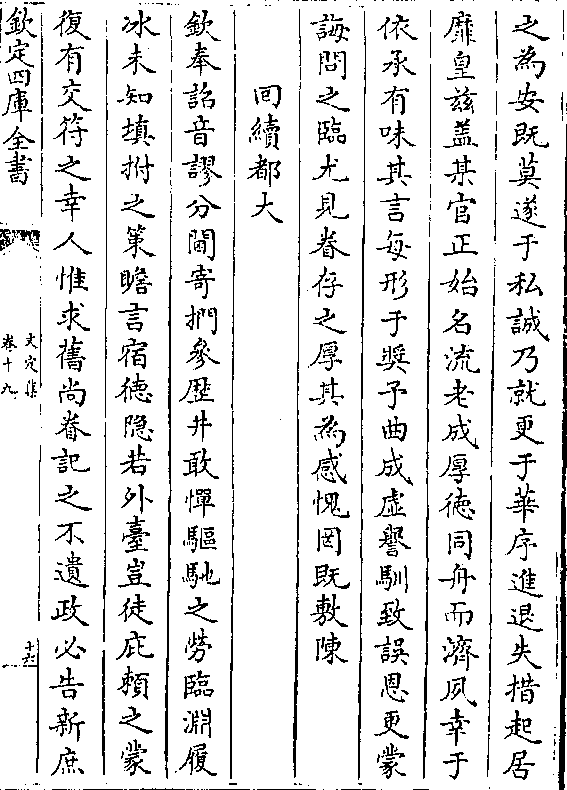 之為安既莫遂于私誠乃就更于華序進退失措起居
靡皇兹盖某官正始名流老成厚徳同舟而濟夙幸于
依承有味其言每形于奬予曲成虚譽馴致誤恩更蒙
誨問之臨尤見眷存之厚其為感愧罔既敷陳
回續都大
欽奉詔音謬分閫寄捫參歴井敢憚驅馳之勞臨淵履
冰未知填拊之策瞻言宿徳隐若外臺豈徒庇頼之蒙
復有交符之幸人惟求舊尚眷記之不遺政必告新庶
欽定四庫全書
文定集
卷十九